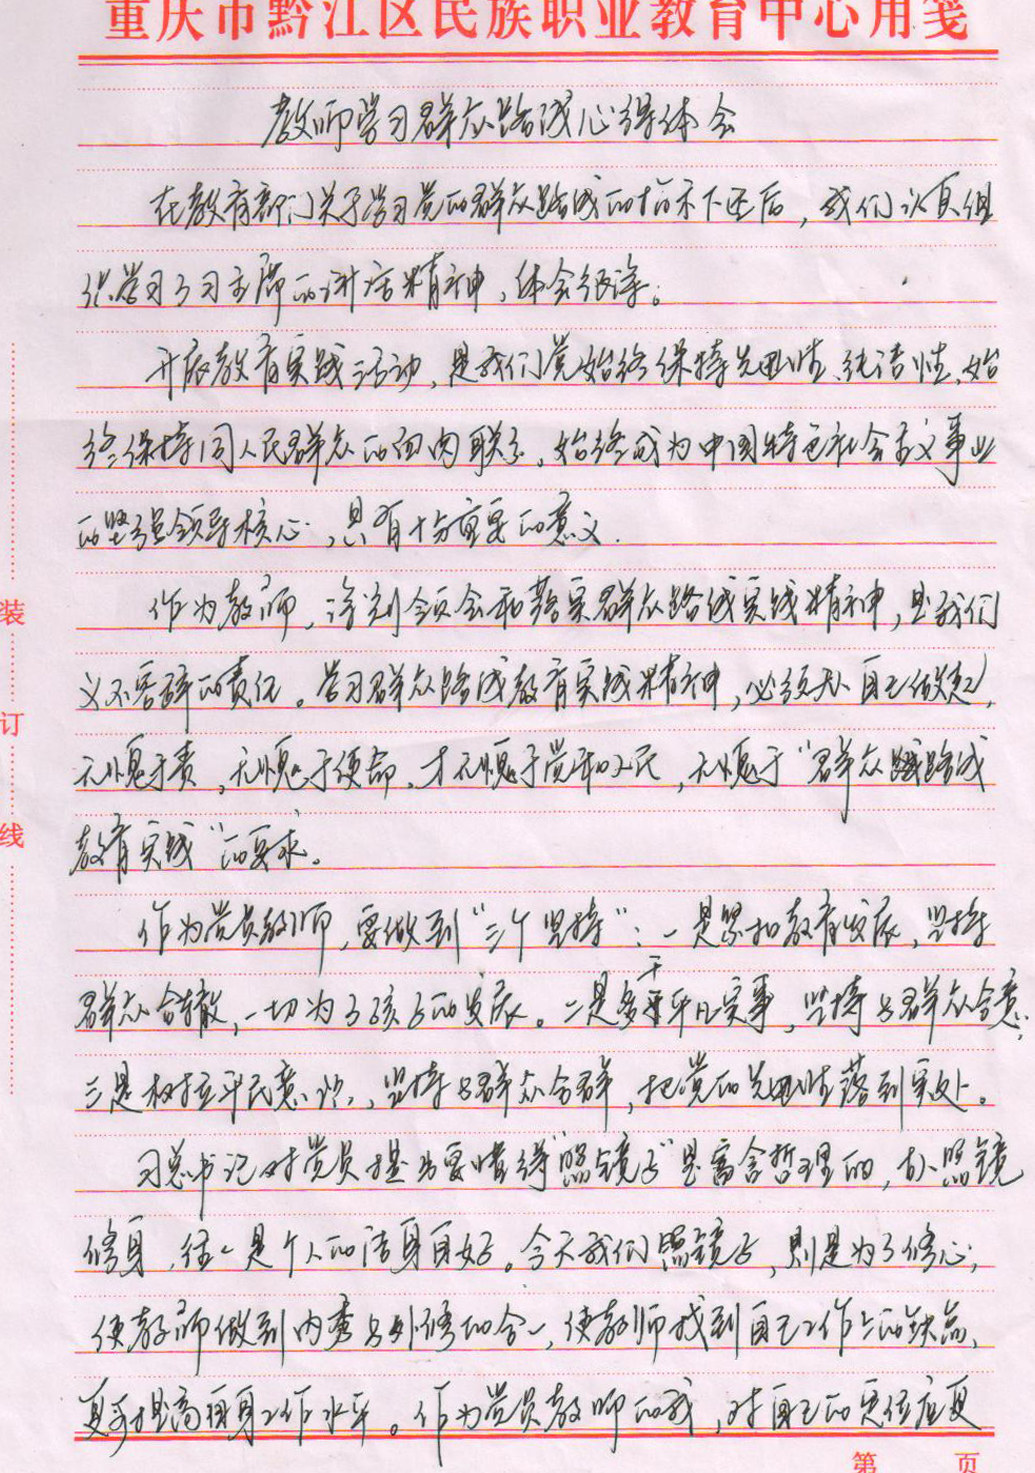 重庆市黔江区民族职业教育中心用笺
教师学习群众路线心得体会
在教育部门关于学习党的群众路线的指示下达后，我们认真组
织学习了习主席的讲话精神，体会很深。
开展教育实践活动，是我们党始终保持先进性、纯洁性、始
终保持同人民群众的血肉联系，始终成为中国特色社会主义事业
的坚强领导核心，具有十分重要的意义.
作为教师，深刻领会和落实群众路线实践精神，是我们
义不容辞的责任。学习群众路线教育实践精神，必须从自己做起，
无愧于责，无愧于使命，才无愧于党和人民，无愧于“群众路线
教育实践”的要求。
作为党员教师，要做到“三个坚持”：一是紧扣教育发展，坚持
群众合辙，一切为了孩子的发展。二是多干平凡实事，坚持与群众合意；
三是树立平民意识，坚持与群众合群，把党的先进性落到实处。
习总书记对党员提出要懂得“照镜子”是富含哲理的，古人照镜
修身，往往是个人的洁身自好。今天我们照镜子，则是为了修心；
使教师做到内秀与外修的合一，使教师找到自己工作上的缺点、
更好提高自身工作水平。作为党员教师的我，对自己的定位应更
装
订
线
第 页